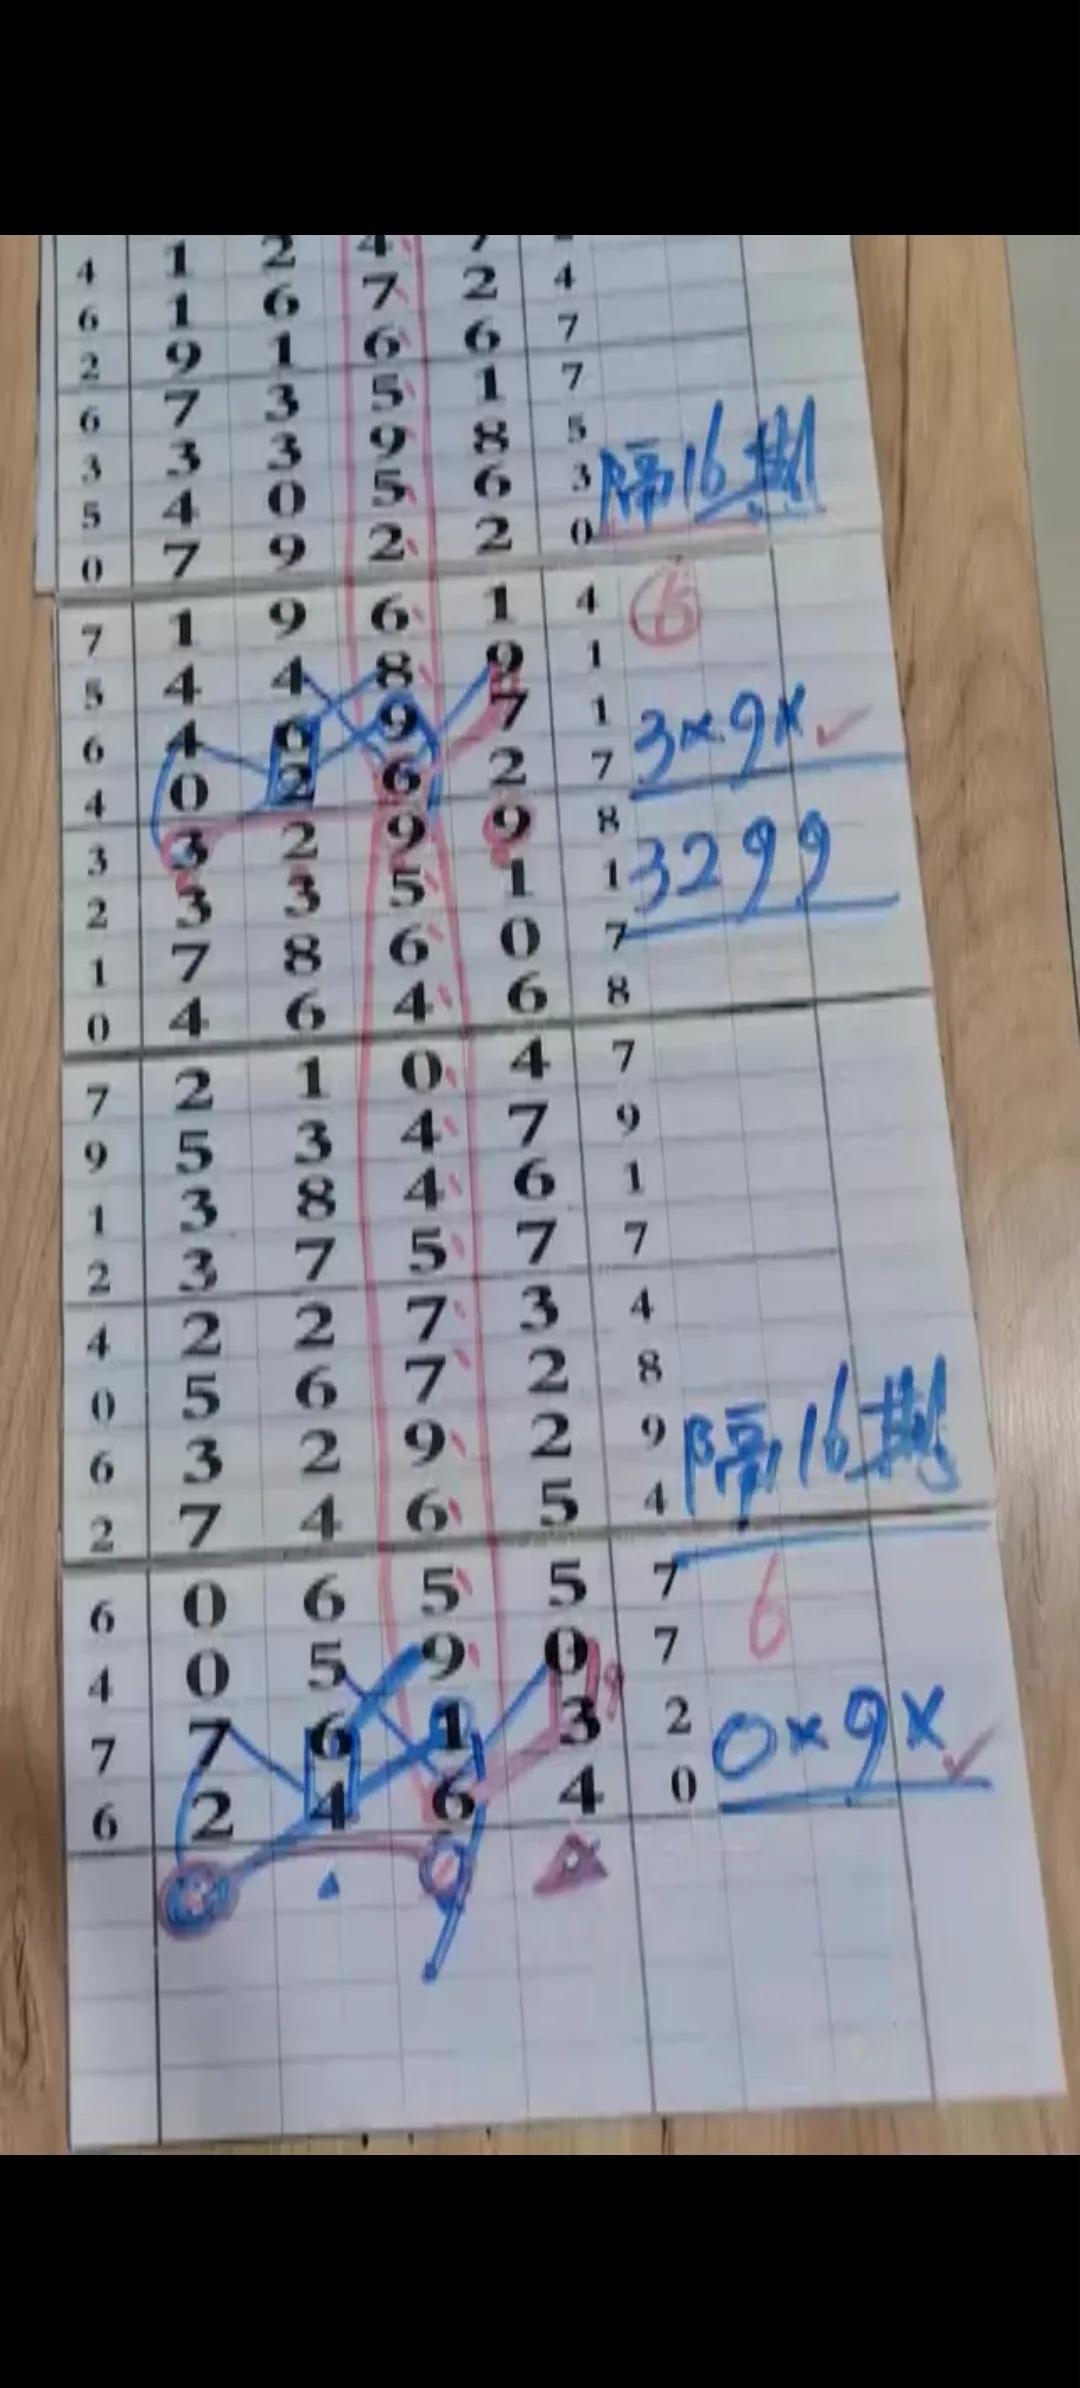 4 1 2 4 7
6 1 6 7 2 4
2 9 1 6 6 7
6 7 3 5 1 7
3 3 3 9 8 5
5 4 0 5 6 3 隔16期
0 7 9 2 2 0
7 1 9 6 1 4 6
5 4 4 8 9 1
6 4 6 9 7 1 3x9x
4 0 2 6 2 7
3 3 2 9 9 8 3299
2 3 3 5 1 1
1 7 8 6 0 7
0 4 6 4 6 8
7 2 1 0 4 7
9 5 3 4 7 9
1 3 8 4 6 1
2 3 7 5 7 7
4 2 2 7 3 4
0 5 6 7 2 8
6 3 2 9 2 9 隔16期
2 7 4 6 5 4
6 0 6 5 5 7 6
4 0 5 9 0 7
7 7 6 1 3 2 0x9x
6 2 4 6 4 0